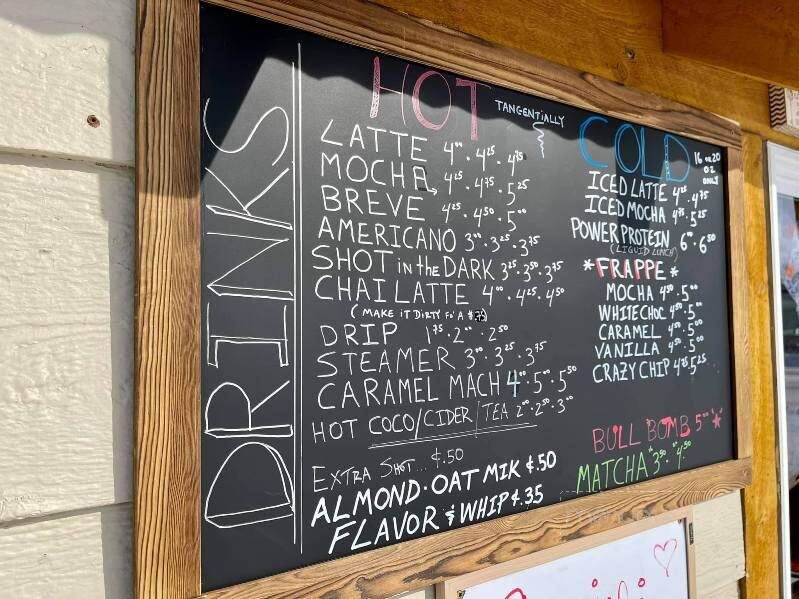 DRINKS
HOT
TANGENTIALLY
LATTE 4.00 · 4.25 · 4.75
MOCHA 4.25 · 4.75 · 5.25
BREVE 4.25 · 4.50 · 5.00
AMERICANO 3.00 · 3.25 · 3.75
SHOT in the DARK 3.25 · 3.50 · 3.75
CHAI LATTE 4.00 · 4.25 · 4.50
(MAKE IT DIRTY FO' A $.75)
DRIP 1.75 · 2.00 · 2.50
STEAMER 3.00 · 3.25 · 3.75
CARAMEL MACH 4.00 · 5.00 · 5.50
HOT COCO/CIDER/TEA 2.00 · 2.50 · 3.00
EXTRA SHOT... $.50
ALMOND · OAT MIK $.50
FLAVOR & WHIP $.35
COLD
16 or 20
OZ
ONLY
ICED LATTE 4.25 · 4.75
ICED MOCHA 4.75 · 5.25
POWER PROTEIN 6.00 · 6.50
(LIQUID LUNCH)
*FRAPPE*
MOCHA 4.50 · 5.00
WHITE CHOC 4.50 · 5.00
CARAMEL 4.50 · 5.00
VANILLA 4.50 · 5.00
CRAZY CHIP 4.75 · 5.25
BULL BOMB 5.00
MATCHA 3.50 · 4.50